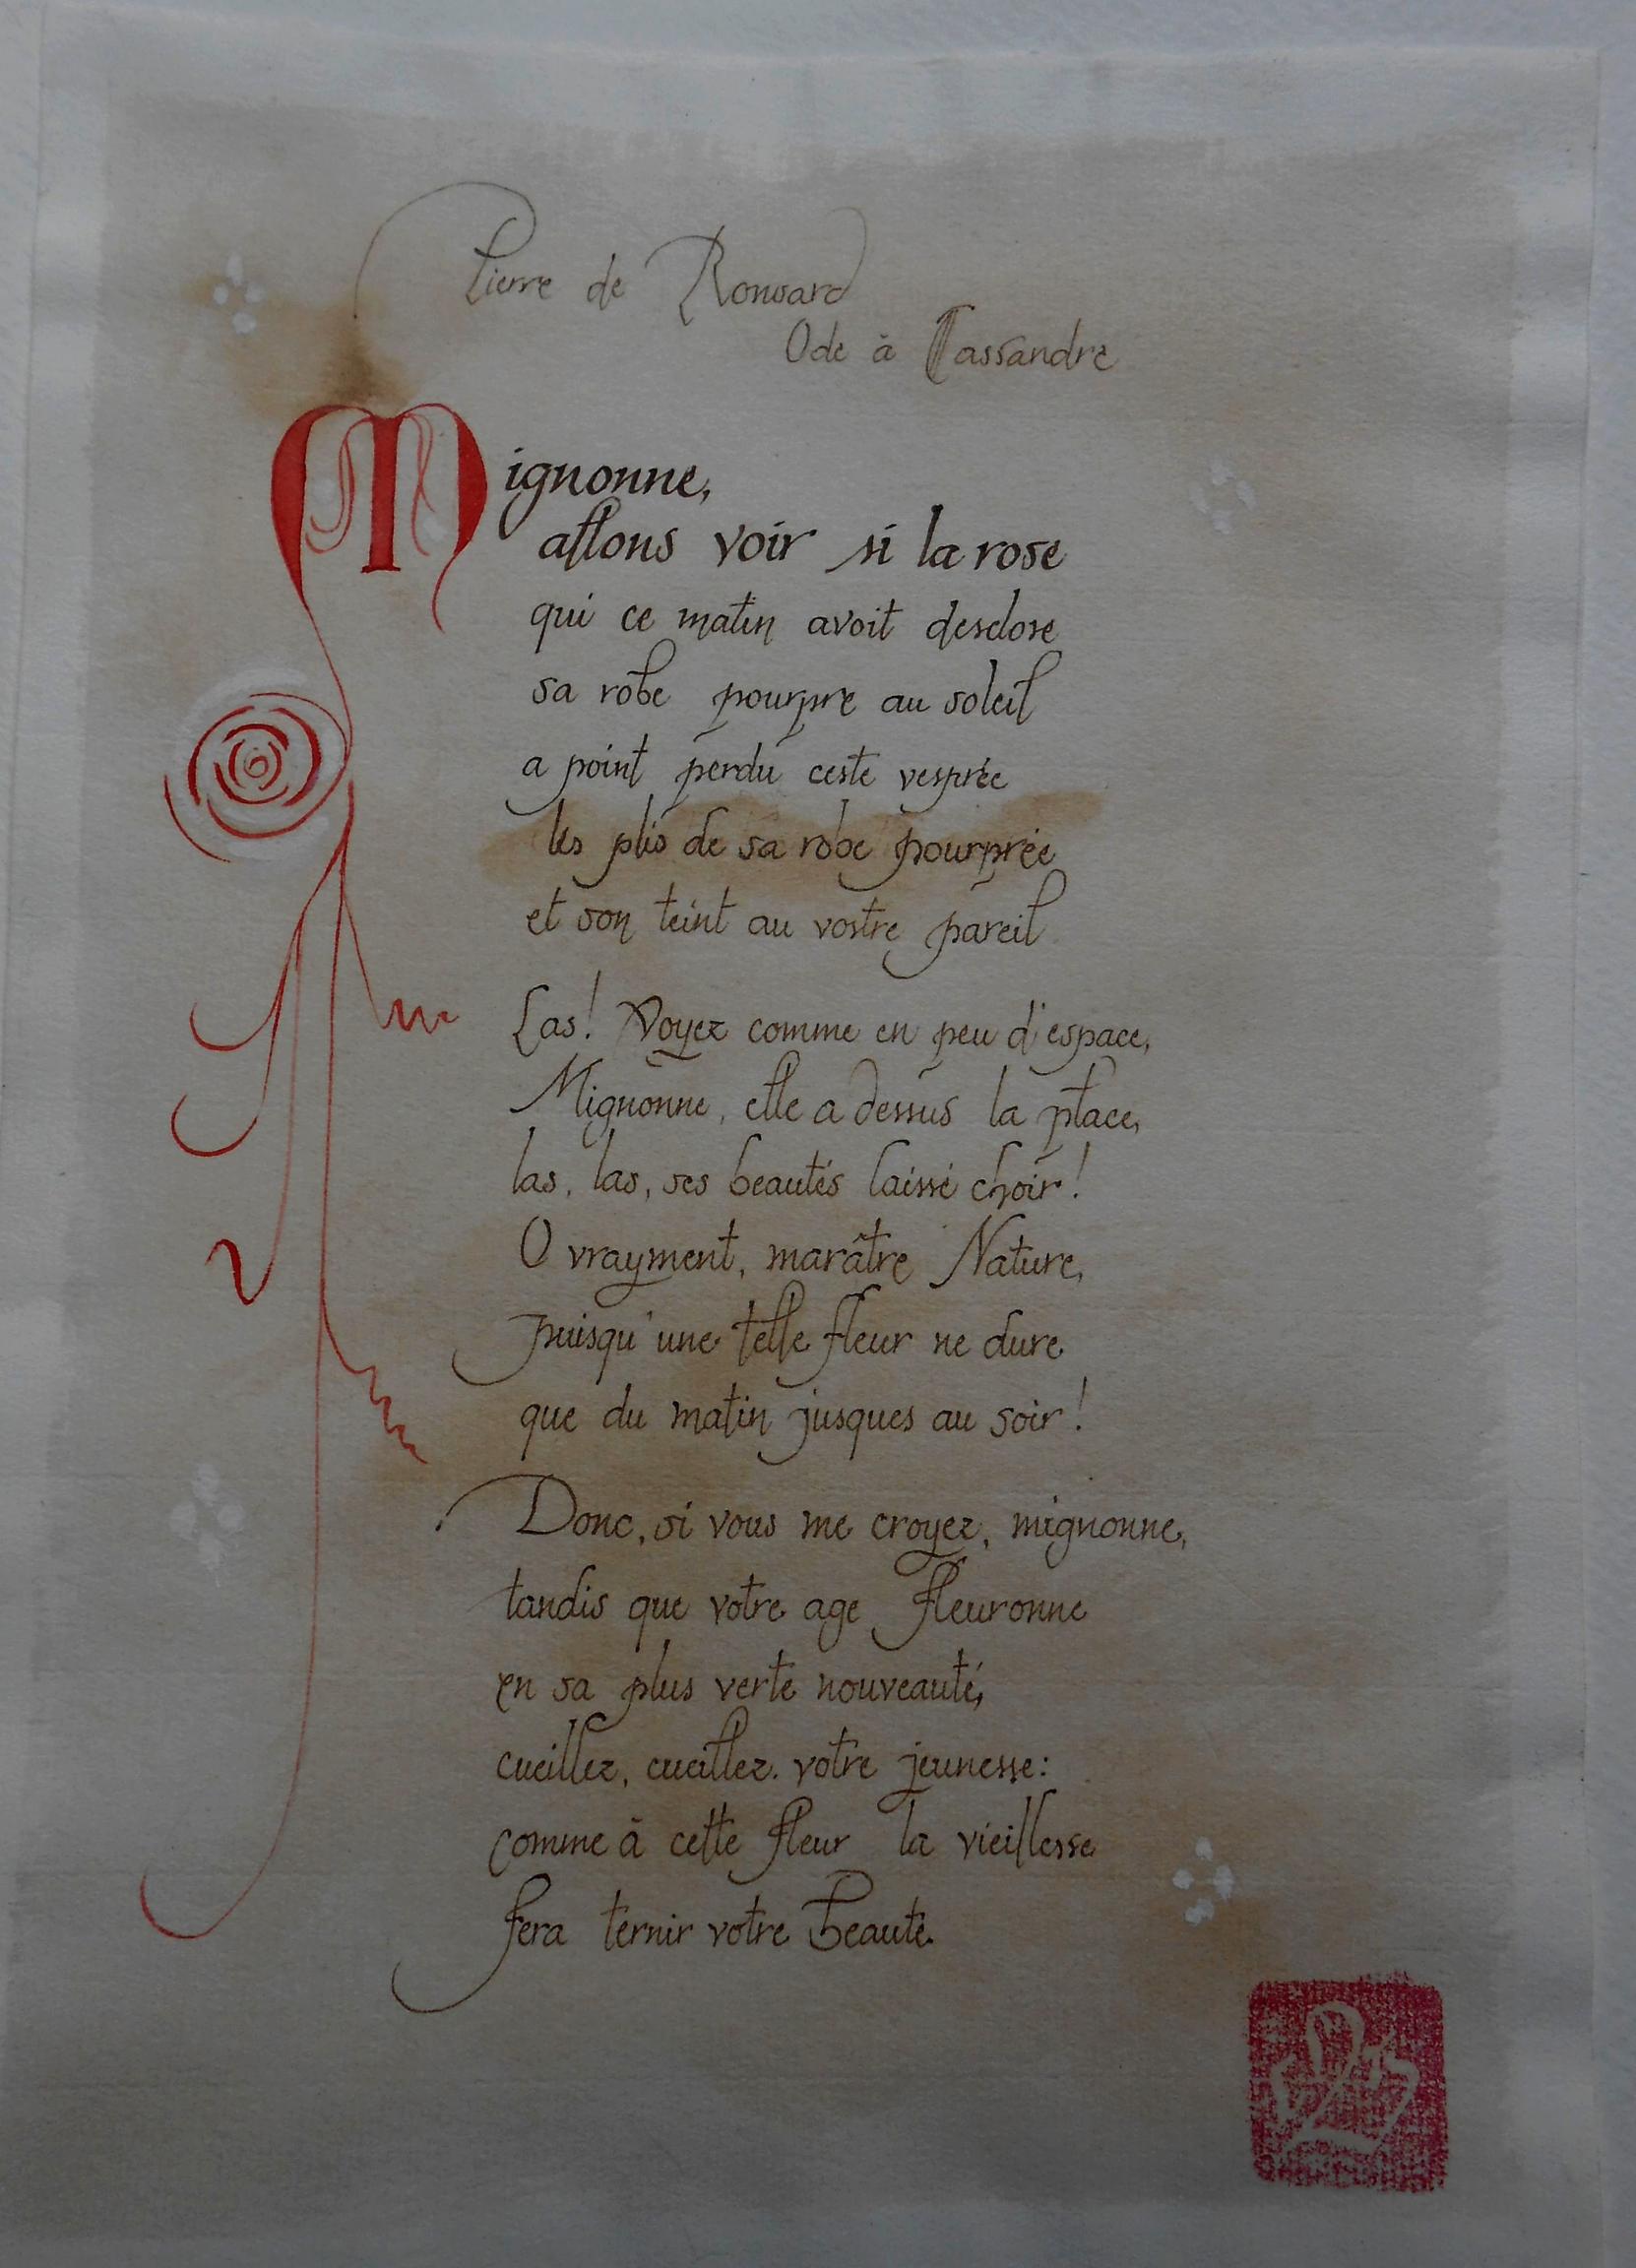 Pierre de Ronsard
Ode à Cassandre
Mignonne,
allons voir si la rose
qui ce matin avoit desclose
sa robe pourpre au soleil
a point perdu ceste vesprée
les plis de sa robe pourprée
et son teint au vostre pareil
Las! Voyez comme en peu d'espace,
Mignonne, elle a dessus la place,
las, las, ses beautés laissé choir!
O vrayment, marâtre Nature,
puisqu'une telle fleur ne dure
que du matin jusques au soir!
Donc, si vous me croyez, mignonne,
tandis que votre age fleuronne
en sa plus verte nouveauté,
cueillez, cueillez votre jeunesse:
comme à cette fleur la vieillesse
fera ternir votre beauté.